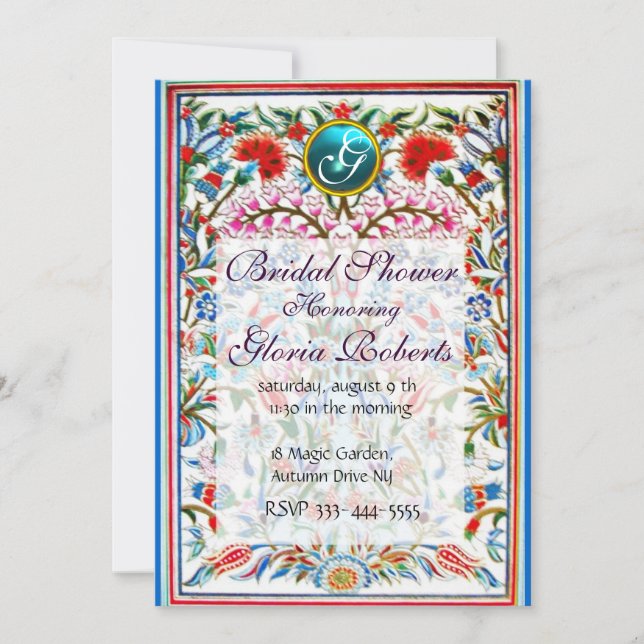 G
Bridal Shower
Honoring
Gloria Roberts
saturday, august 9 th
11:30 in the morning
18 Magic Garden,
Autumn Drive NY
RSVP 333-444-5555